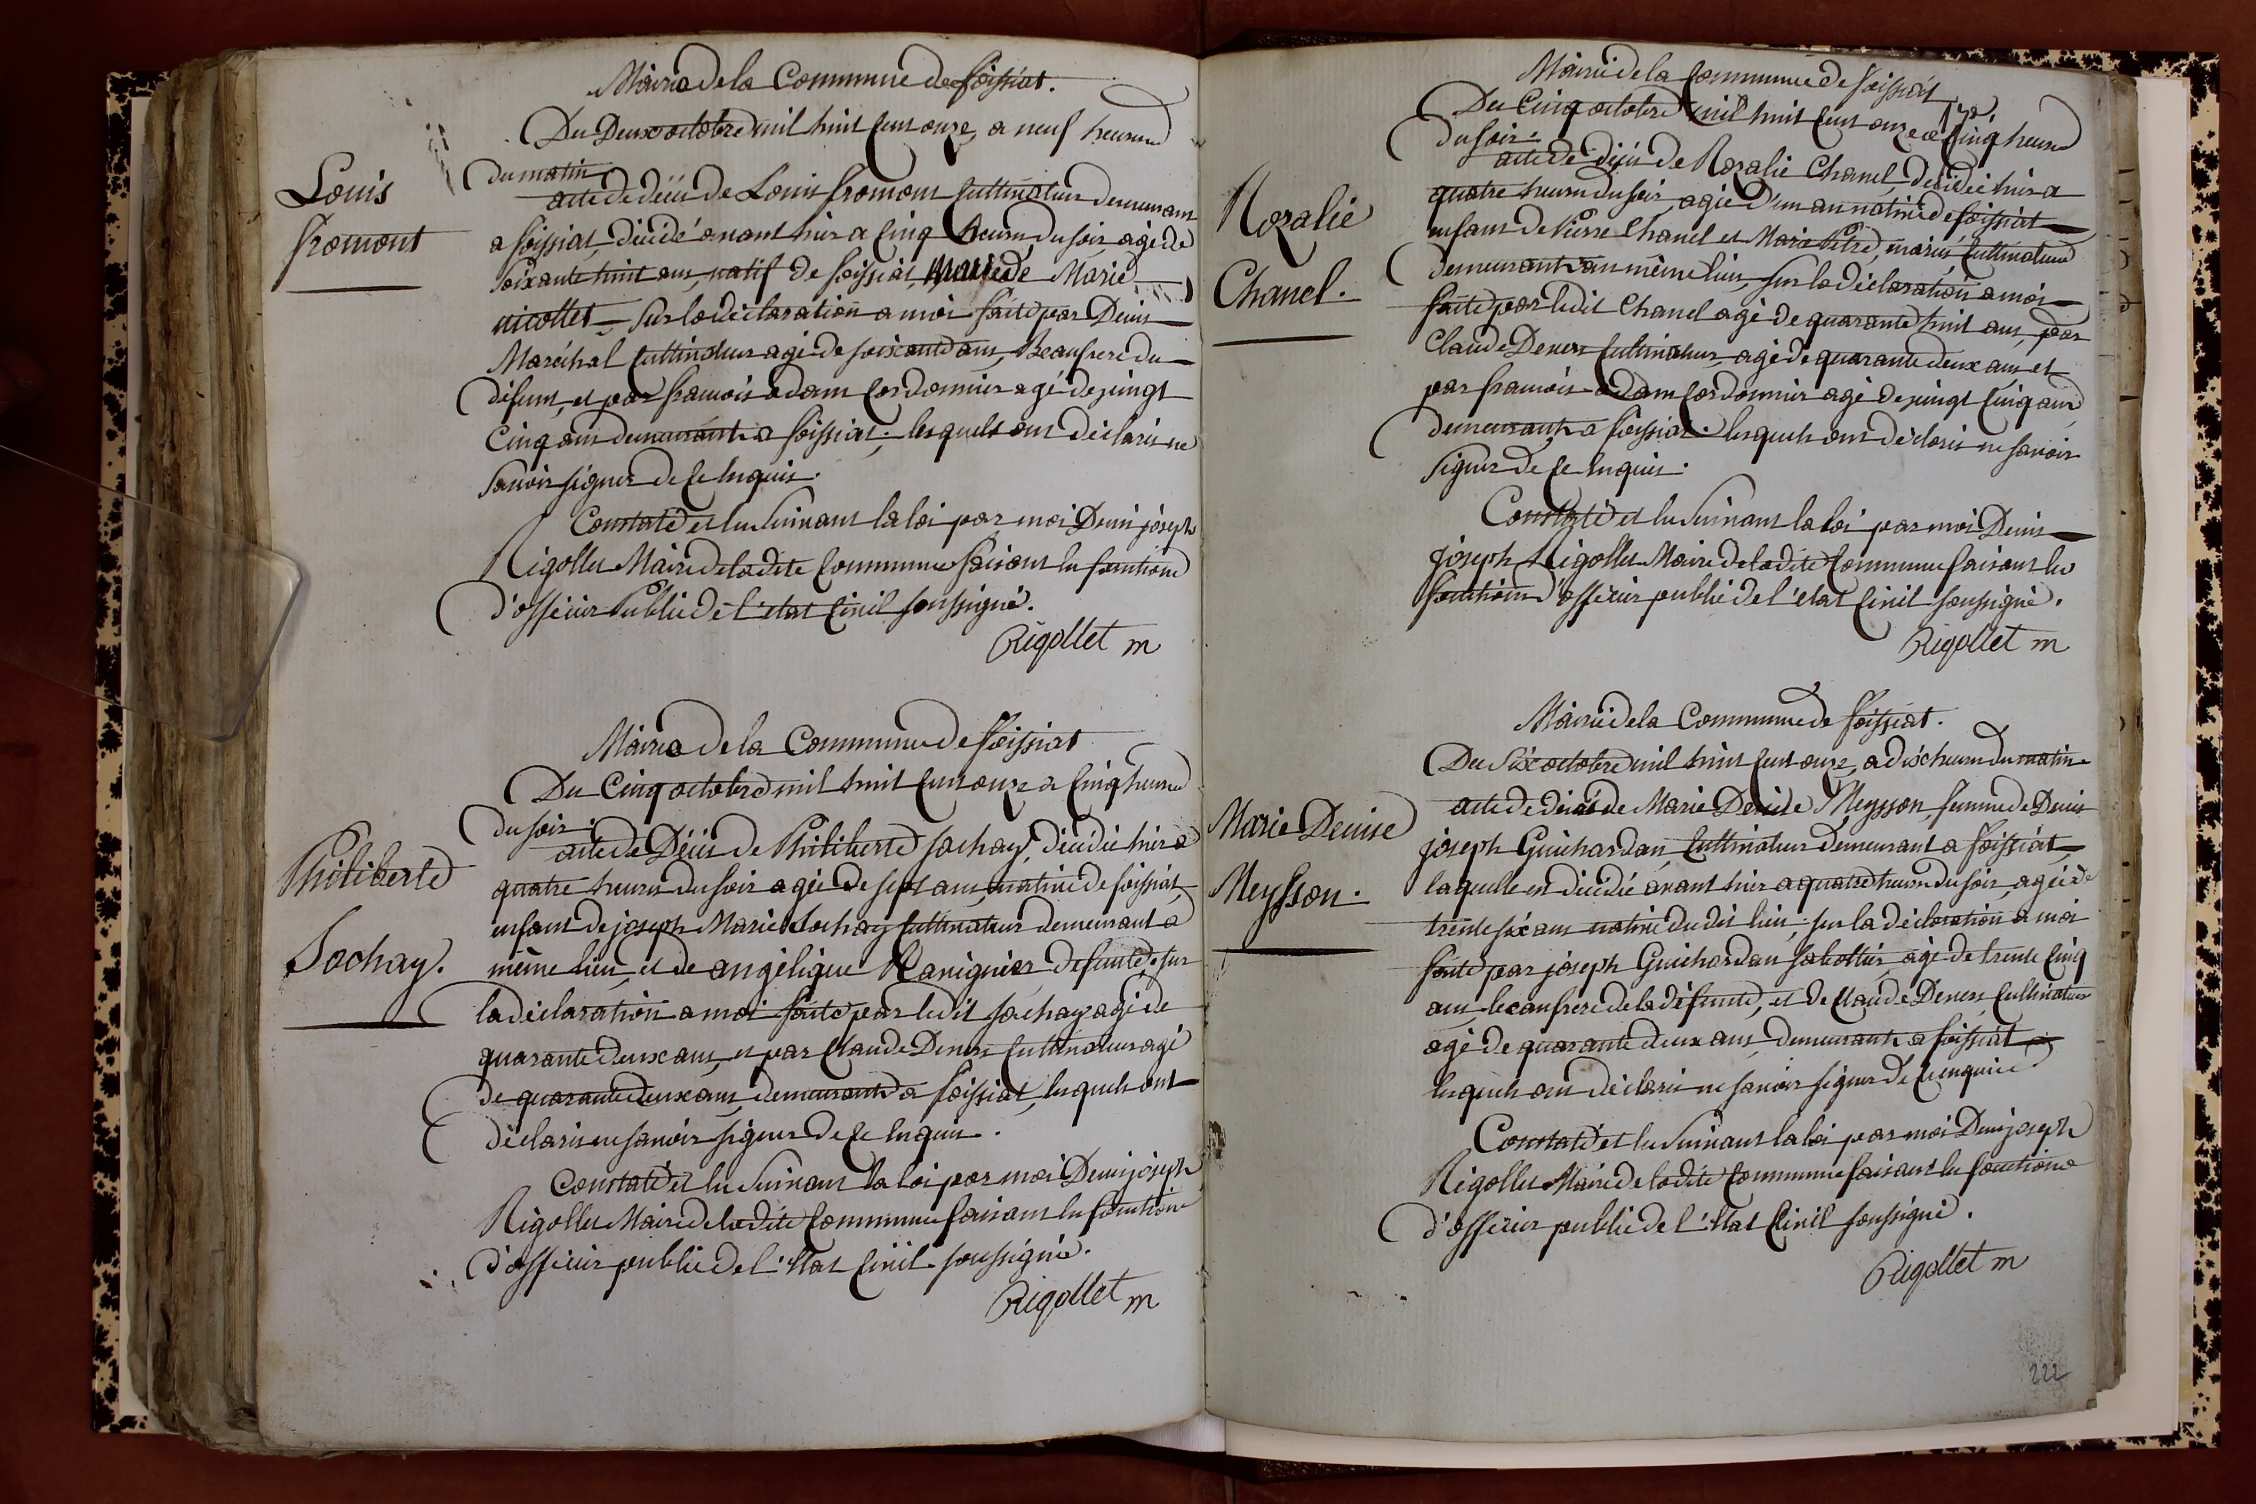 Mairie de la Commune de foissiat.
Du Deux octobre mil huit Cent onze, a neuf heures
du matin
Louis
fromont
acte de décès de Louis fromont Cultivateur demeurant
a foissiat, décidé avant hier a Cinq heures du soir, agé de
soixante huit ans, natif de foissiat, marié de Marie
nicollet, sur la déclaration a moi faite par Denis
Maréchal Cultivateur agé de soixante ans, Beaufrere du
défunt, et par francois adam Cordonnier agé de vingt
Cinq ans demeurants a foissiat; lesquels ont déclarés ne
savoir signer de Ce Enquis.
Constaté et lu suivant la loi par moi Denis joseph
Rigollet Maire de la dite Commune faisant les fonctions
d'officier Public de l'état Civil soussigné.
Rigollet m
Mairie de la Commune de foissiat
Du Cinq octobre mil huit Cent onze a Cinq heures
du soir.
Philiberte
Sochay.
acte de Décès de Philiberte sochay, décidée hier a
quatre heures du soir agée de sept ans, native de foissiat,
enfant de joseph Marie Sochay Cultivateur demeurant a
même lieu, et de angélique Ravignier, defunte, sur
la déclaration a moi faite par ledit sochay agé de
quarante deux ans, et par Claude Deners Cultivateur agé
de quarante deux ans, demeurants a foissiat, lesquels ont
déclarés ne savoir signer de Ce Enquis.
Constaté et lu suivant la loi par moi Denis joseph
Rigollet Maire de la dite Commune faisant les fonctions
d'officier public de l'Etat Civil soussigné.
Rigollet m
Mairie de la Commune de foissiat
Du Cinq octobre mil huit Cent onze a Cinq heures
du soir.
Rozalie
Chanel.
acte de décès de Rozalie Chanel, décidée hier a
quatre heures du soir, agée d'un an native de foissiat
enfant de Pierre Chanel et Marie Pitre, mariés Cultivateurs
demeurants au même lieu, sur la déclaration a moi
faite par ledit Chanel agé de quarante huit ans, par
Claude Deners Cultivateur, agé de quarante deux ans, et
par francois adam Cordonnier agé de vingt Cinq ans,
demeurants a foissiat. lesquels ont déclarés ne savoir
signer de Ce Enquis.
Constaté et lu suivant la loi par moi Denis
joseph Rigollet Maire de la dite Commune faisant les
fonctions d'officier public de l'état Civil soussigné.
Rigollet m
Mairie de la Commune de foissiat.
Du Six octobre mil huit Cent onze, a dix heures du matin
Marie Denise
Meysson.
acte de décès de Marie Denise Meysson, femme de Denis
joseph Guichardan, Cultivateur demeurant a foissiat,
laquelle est décidée avant hier a quatre heures du soir, agée de
trente six ans native du dit lieu; sur la déclaration a moi
faite par joseph Guichardan sabottier, agé de trente Cinq
ans, beaufrere de la défunte, et de Claude Deners Cultivateur
agé de quarante deux ans, demeurants a foissiat
lesquels ont déclarés ne savoir signer de Ce enquis
Constaté et lu suivant la loi par moi Denis joseph
Rigollet Maire de la dite Commune faisant les fonctions
d'officier public de l'Etat Civil soussigné.
Rigollet m
222